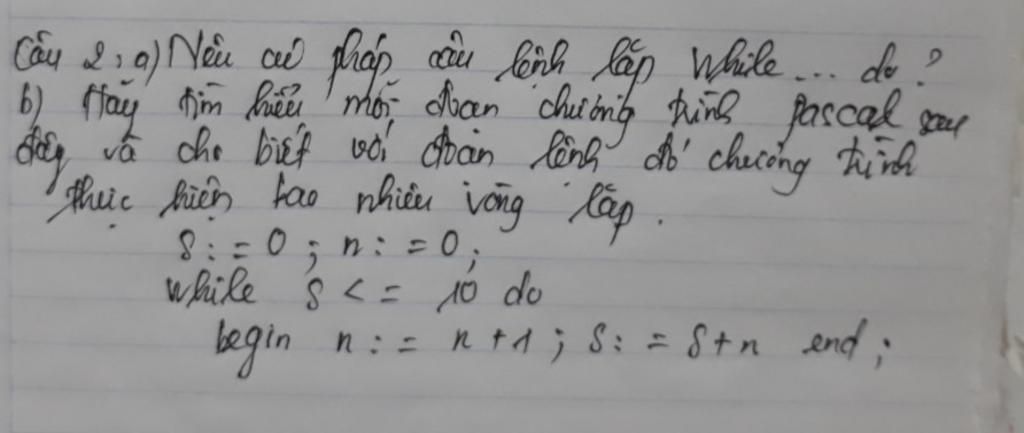 Câu 2, a) Nêu cú pháp câu lệnh lặp While... do?
b) Hãy tìm hiểu mỗi đoạn chương trình pascal sau
đây và cho biết với đoạn lệnh đó chương trình
thực hiện bao nhiêu vòng lặp.
S:=0; n:=0;
While S<= 10 do
begin n:= n+1; S:= S+n end;